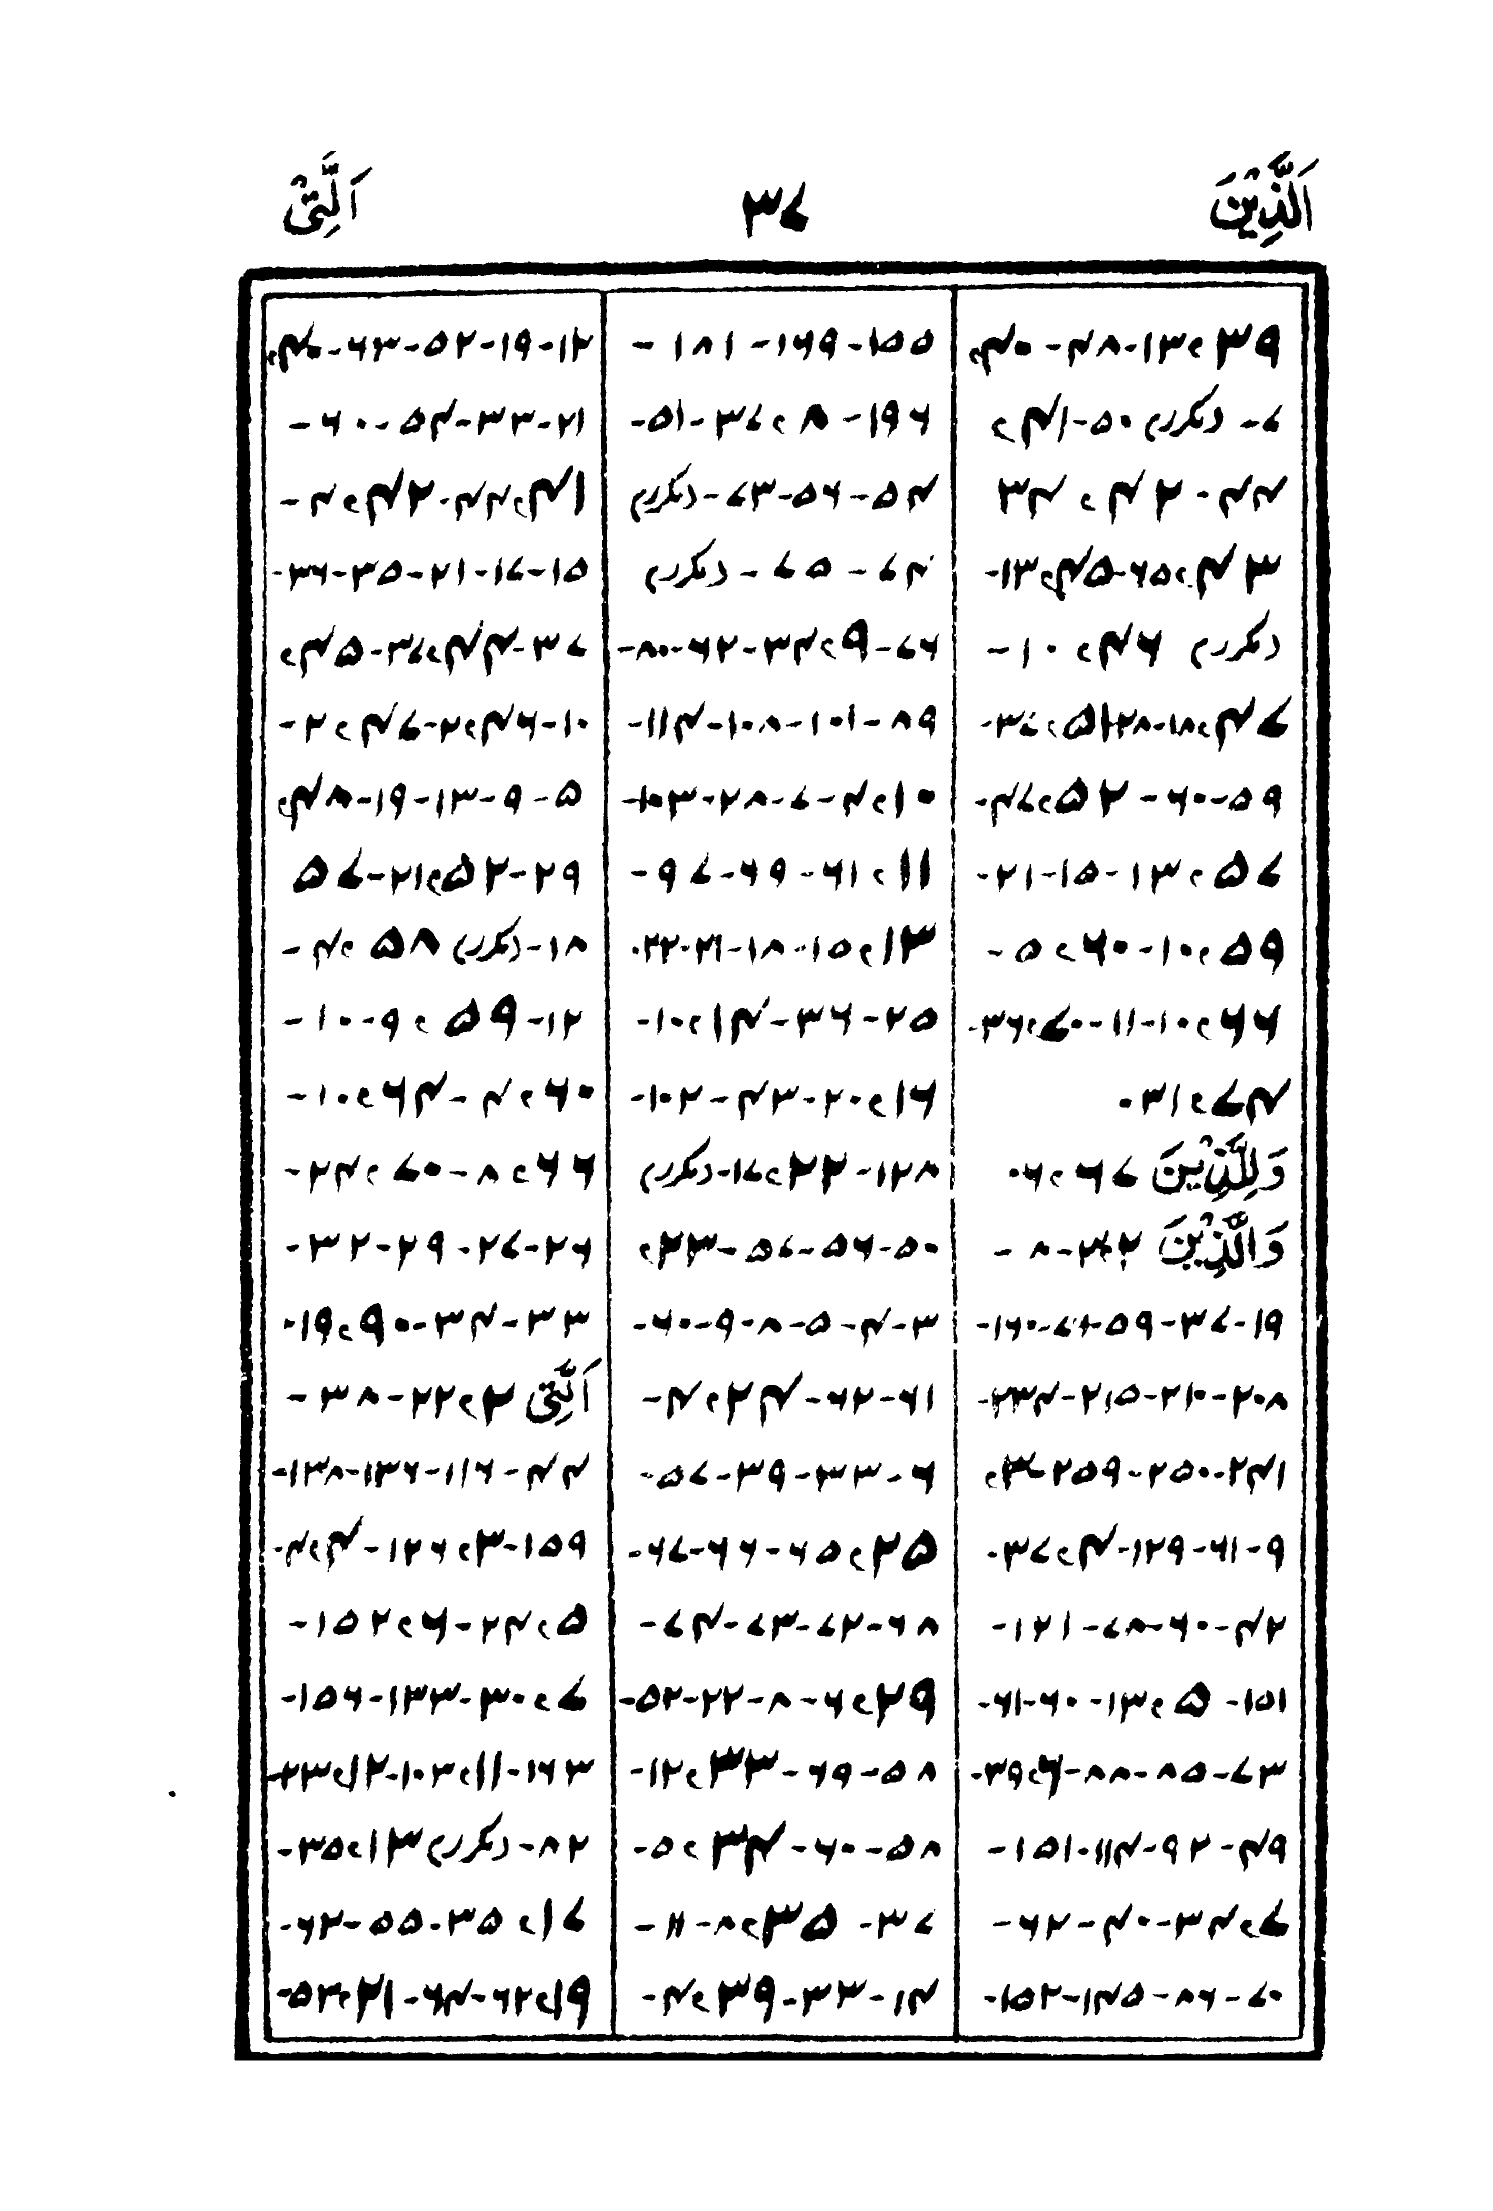 اَلَّذِیْنَ
۳۷
اَلَّتِیْ
۳۹ء ۱۳-۴۸-۴۰ء
۷- (مکرر) ۵۰-۴۱ء
۴۴-۴۲ء ۳۴
۴۳ء ۶۵-۴۵ء ۱۳-
(مکرر) ۴۶ء ۱۰-
۴۷ء ۱۸-۲۸-۵۱ء ۳۷-
۵۹-۶۰-۵۲ء ۴۷-
۵۷ء ۱۳-۱۵-۲۱-
۵۹ء ۱۰-۶۰ء ۵-
۶۶ء ۱۰-۱۱-۷۰ء ۳۶-
۷۴ء ۳۱-
وَلِلَّذِیْنَ ۶۷ء ۶-
وَالَّذِیْنَ ۸-
۱۹-۳۷-۵۹-۱۶۰-
۲۰۸-۲۱۰-۲۱۵-۲۳۴-
۲۴۱-۲۵۰-۲۵۹-۳ء
۹-۶۱-۱۲۹-۴ء ۳۷-
۴۲-۶۰-۷۸-۱۲۱-
۱۵۱-۵ء ۱۳-۶۰-۶۱-
۷۳-۸۵-۸۸-۶ء ۳۹-
۴۹-۹۲-۱۱۴-۱۵۱-
۷ء ۳۴-۴۰-۶۲-
۷۰-۸۶-۱۴۵-۱۵۲-
۱۵۵-۱۶۹-۱۸۱-
۱۹۶-۸ء ۳۷-۵۱-
۵۴-۵۶-۷۳-(مکرر)
۷۴-۷۵-(مکرر)
۷۶-۹ء ۳۴-۶۲-۸۰-
۸۹-۱۰۱-۱۰۸-۱۱۴-
۱۰ء ۴-۷-۲۸-۱۰۳-
۱۱ء ۶۱-۶۹-۹۷-
۱۳ء ۱۵-۱۸-۲۱-۲۲-
۲۵-۳۶-۱۴ء ۱۰-
۱۶ء ۲۰-۴۳-۱۰۲-
۱۲۸-۲۲ء ۱۷-(مکرر)
۵۰-۵۶-۵۷-۲۳ء
۳-۴-۵-۸-۹-۶۰-
۶۱-۶۲-۲۴ء ۴-
۶-۳۳-۳۹-۵۷-
۲۵ء ۶۵-۶۶-۶۷-
۶۸-۷۲-۷۳-۷۴-
۲۹ء ۶-۸-۲۲-۵۲-
۵۸-۶۹-۳۳ء ۱۲-
۵۸-۶۰-۳۴ء ۵-
۳۷-۳۵ء ۸-۱۱-
۱۴-۳۳-۳۹ء ۴-
۱۲-۱۹-۵۲-۶۳-۴۰ء
۲۱-۳۳-۵۴-۶۰-
۴۱ء ۴۴-۴۲ء ۴-
۱۵-۱۷-۲۱-۳۵-۳۶-
۳۷-۴۴ء ۳۷-۴۵ء
۱۰-۴۶ء ۲-۴۷ء ۲-
۵-۹-۱۳-۱۹-۴۸ء
۲۹-۵۲ء ۲۱-۵۷
۱۸-(مکرر) ۵۸ء ۴-
۱۲-۵۹ء ۹-۱۰-
۶۰ء ۴-۶۴ء ۱۰-
۶۶ء ۸-۷۰ء ۲۴-
۲۶-۲۷-۲۹-۳۲-
۳۳-۳۴-۹۰ء ۱۹-
اَلَّتِیْ ۲ء ۲۲-۳۸-
۴۴-۱۱۶-۱۳۶-۱۳۸-
۱۵۹-۳ء ۱۲۶-۴ء ۴-
۵ء ۲۴-۶ء ۱۵۲-
۷ء ۳۰-۱۳۳-۱۵۶-
۱۶۳-۱۱ء ۱۰۳-۱۲ء ۲۳-
۸۲-(مکرر) ۱۳ء ۳۵-
۱۷ء ۳۵-۵۵-۶۲-
۱۹ء ۶۲-۶۴-۲۱ء ۵۳-